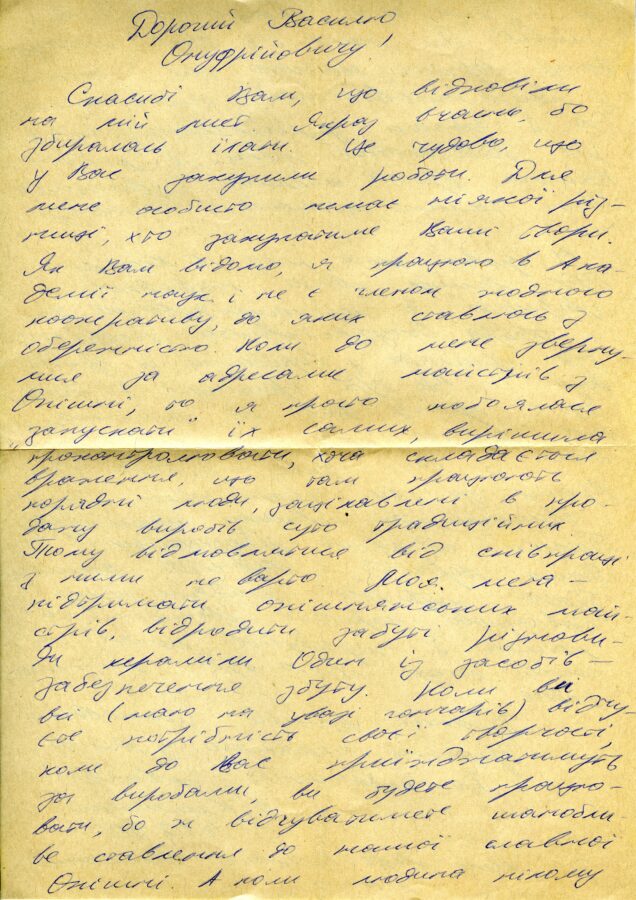 Дорогий Василю
Онуфрійовичу!
Спасибі Вам, що відповіли
на мій лист. Якраз вчасно, бо
збиралась їхати. Це чудово, що
у Вас закупили роботи. Для
мене особисто немає ніякої різ-
ниці, хто закупатиме Ваші твори.
Як Вам відомо, я працюю в Ака-
демії наук і не є членом жодного
кооперативу, до яких ставлюсь з
обережністю. Коли до мене зверну-
лися за адресами майстрів з
Опішні, то я просто побоялася
„запускати" їх самих, вирішила
проконтролювати, хоча складається
враження, що там працюють
порядні люди, зацікавлені в про-
дажу виробів суто традиційних.
Тому відмовлятися від співпраці
з ними не варто. Моя мета -
підтримати опішнянських май-
стрів, відродити забуті різнови-
ди кераміки. Один із засобів -
забезпечення збуту. Коли ви
всі (маю на увазі гончарів) відчу-
єте потрібність своєї творчості,
коли до Вас приїжджатимуть
за виробами, ви будете працю-
вати, бо ж відчуватимете шанобли-
ве ставлення до нашої славної
Опішні. А коли людина нікому